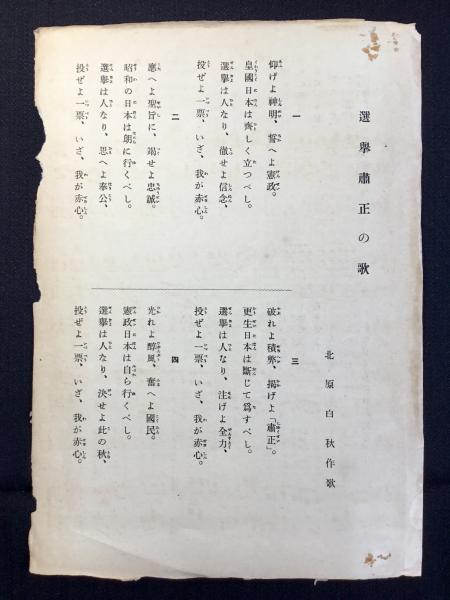 選擧肅正の歌
北原白秋作歌
一
仰げよ神明、誓へよ憲政。
皇國日本は齊しく立つべし。
選擧は人なり、徹せよ信念、
投ぜよ一票、いざ、我が赤心。
二
應へよ聖旨に、竭せよ忠誠。
昭和の日本は朗に行くべし。
選擧は人なり、思へよ奉公、
投ぜよ一票、いざ、我が赤心。
三
破れよ積弊、揚げよ「肅正」。
更生日本は斷じて爲すべし。
選擧は人なり、注げよ全力、
投ぜよ一票、いざ、我が赤心。
四
光れよ醇風、奮へよ國民。
憲政日本は自ら行くべし。
選擧は人なり、決せよ此の秋、
投ぜよ一票、いざ、我が赤心。